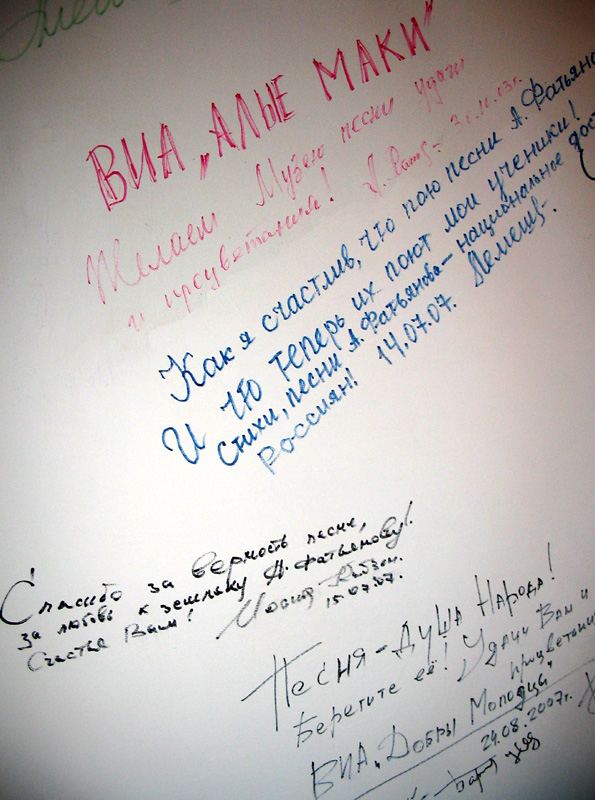 ВИА „АЛЫЕ МАКИ"
Желаем Музею песни удачи
и процветания!
Как я счастлив, что пою песни А. Фатьяно
И что теперь их поют мои ученики!
Стихи, песни А. Фатьянова - национальное дос
россиян! 14.07.07.
Спасибо за верность песне,
за любовь к земляку А. Фатьянову!
Счастья Вам!
Иосиф Кобзон.
15.07.07.
Песня - Душа Народа!
Берегите её! Удачи Вам и
процветани
ВИА „Добры Молодцы"
24.08.2007г.